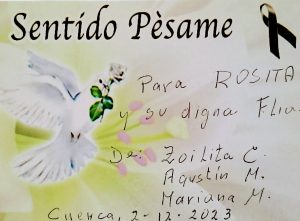 Sentido Pèsame
Para ROSITA
y su digna Flia.
De: Zoilita C.
Agustín M.
Mariana M.
Cuenca, 2-12-2023